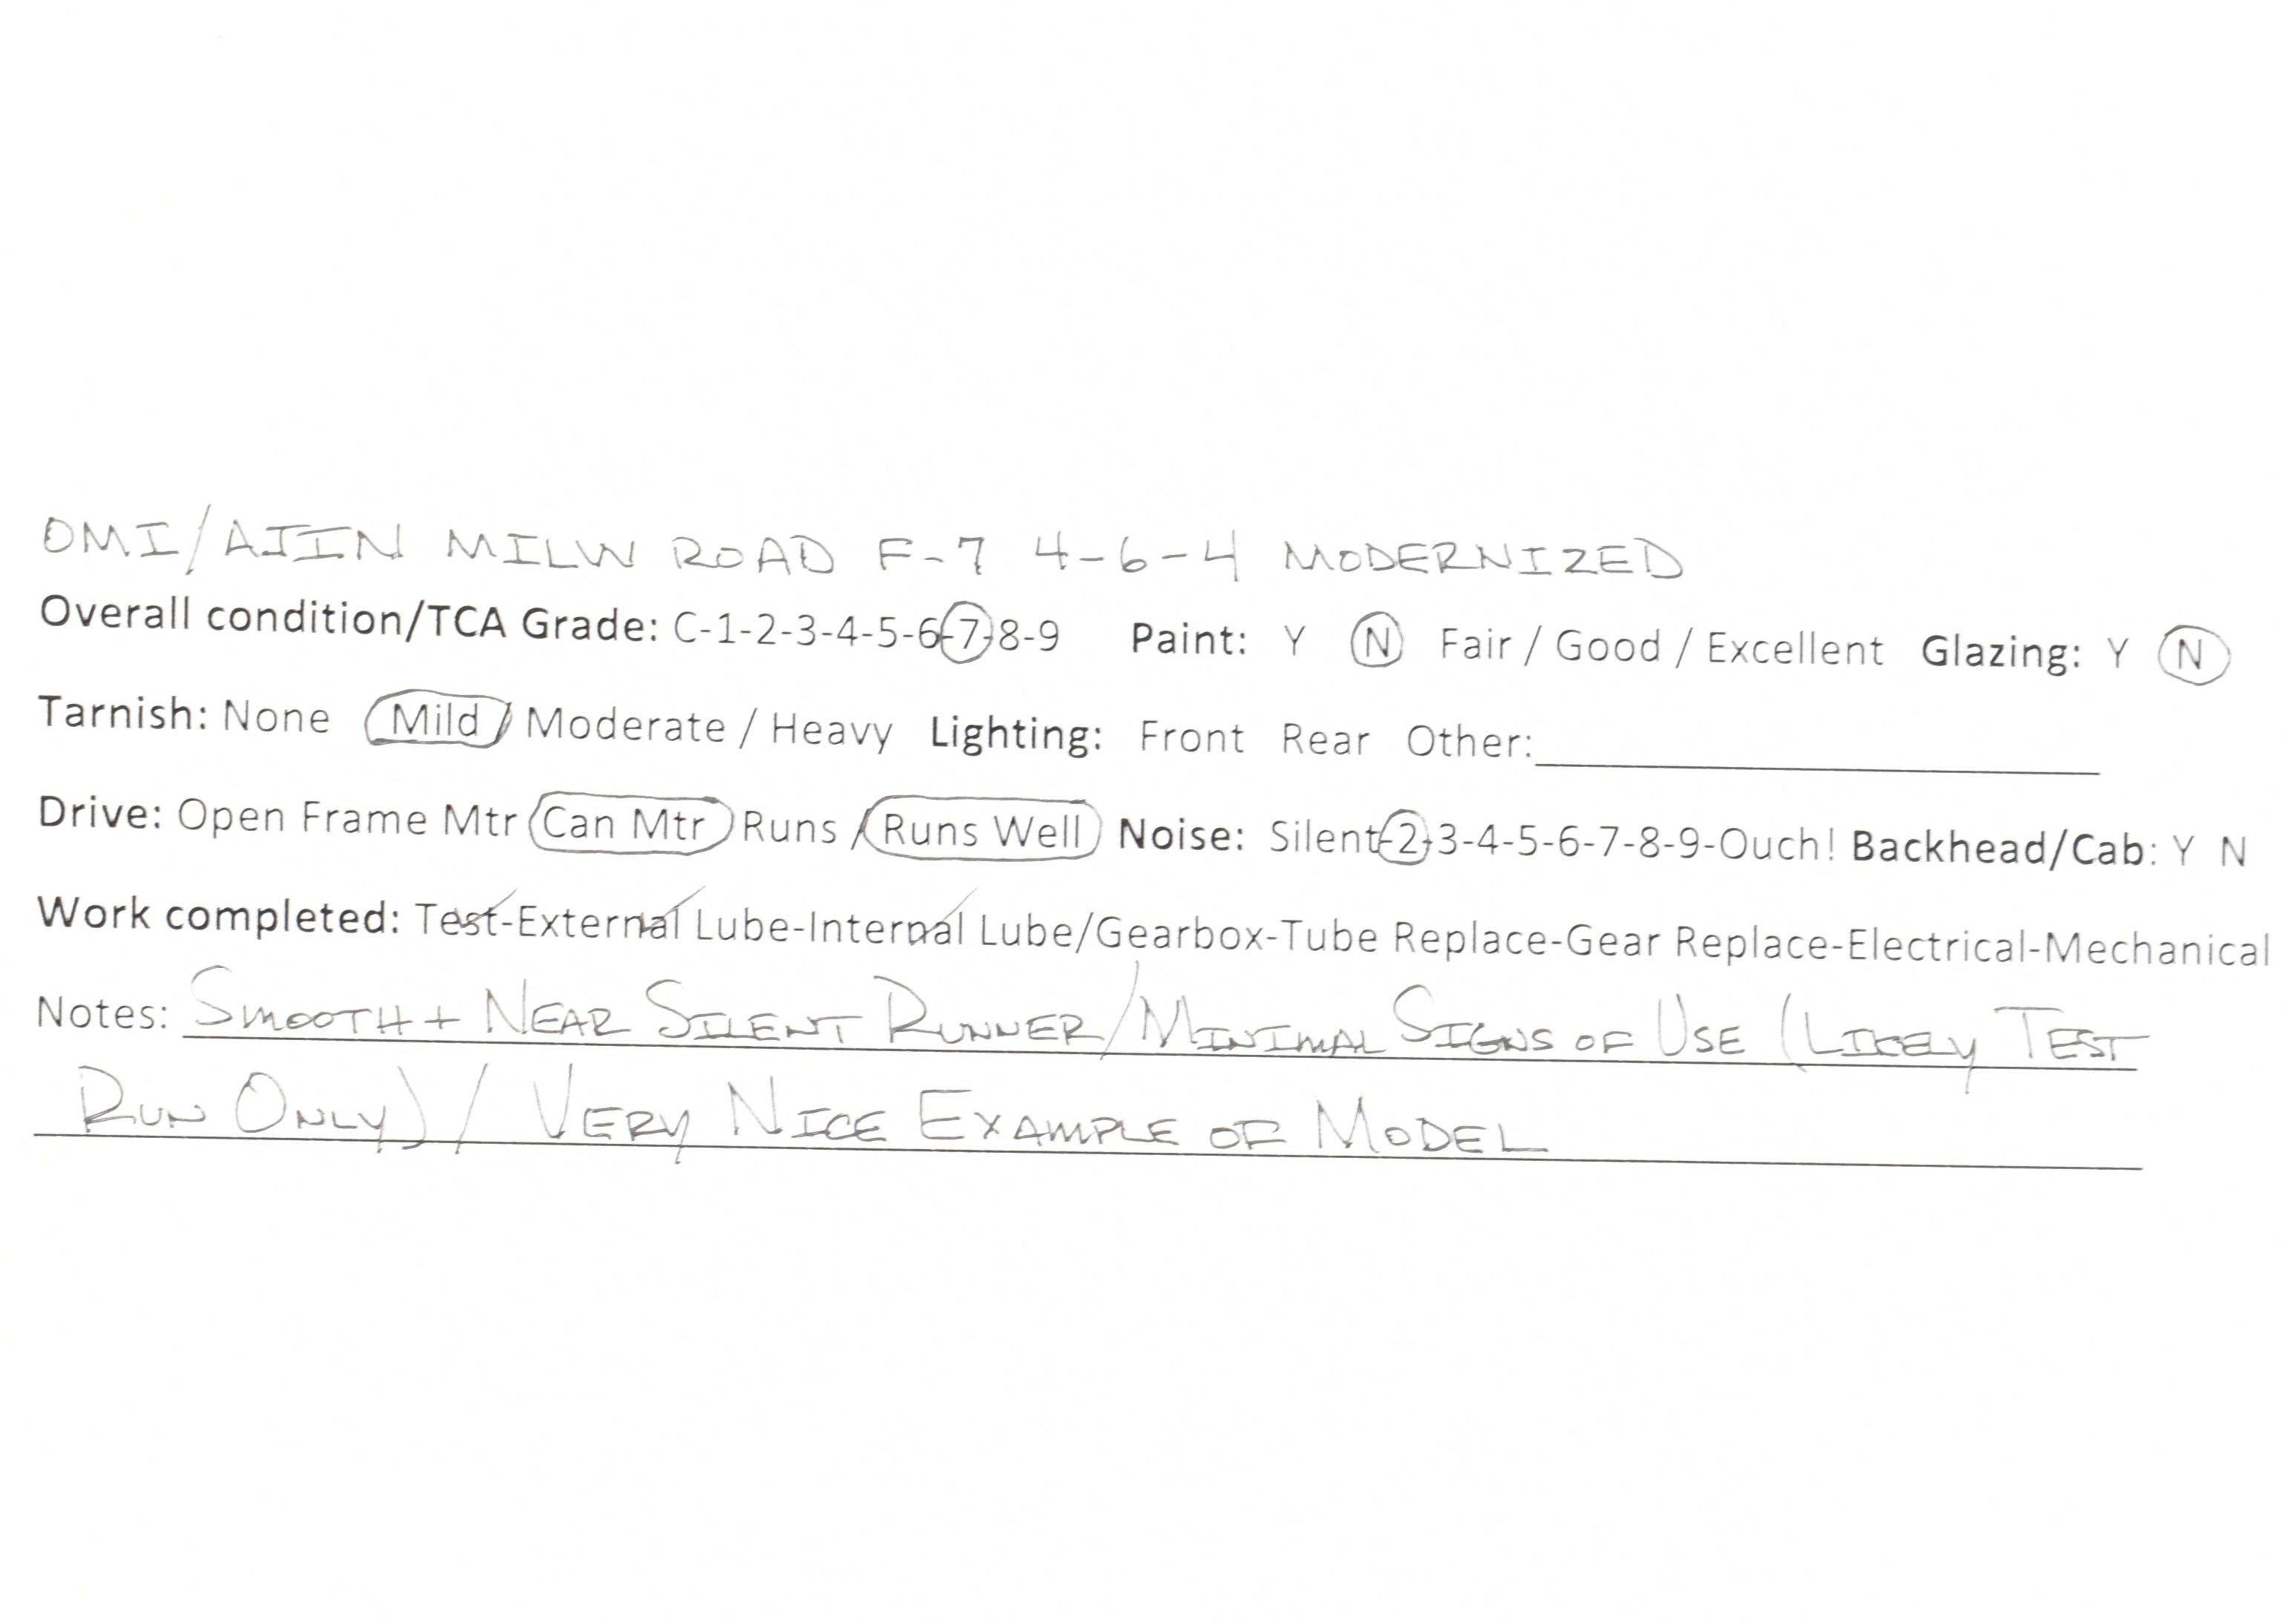 OMI/AJIN MILW ROAD F-7 4-6-4 MODERNIZED
Overall condition/TCA Grade: C-1-2-3-4-5-6-7-8-9 Paint: Y N Fair / Good / Excellent Glazing: Y N
Tarnish: None Mild / Moderate / Heavy Lighting: Front Rear Other:
Drive: Open Frame Mtr Can Mtr Runs / Runs Well Noise: Silent-2-3-4-5-6-7-8-9-Ouch! Backhead/Cab: Y N
Work completed: Test-External Lube-Internal Lube/Gearbox-Tube Replace-Gear Replace-Electrical-Mechanical
Notes: SMOOTH + NEAR SILENT RUNNER/MINIMAL SIGNS OF USE (LIKELY TEST
RUN ONLY) / VERY NICE EXAMPLE OF MODEL